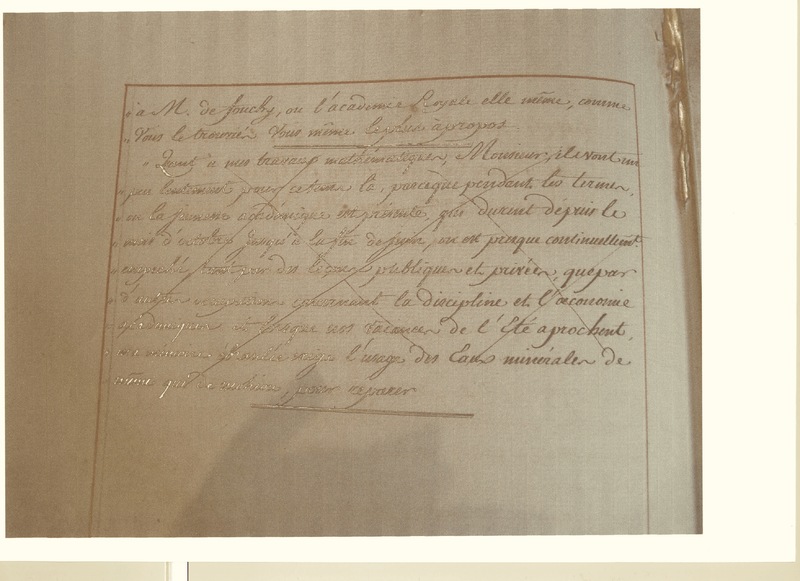 à M. de fouchy, ou l'académie Royale elle même, comme
„ Vous le trouvéz Vous même le plus àpropos.
„ Quant à nos travaux mathématiques, Monsieur, ils vont un
„ peu lentement pour ce tems là, parceque pendant les termes,
„ ou la jeunesse académique est présente, qui durent dépuis le
„ mois d'octobre jusqu'à la fin de juin, on est presque continuellemt.
„ par des leçons publiques et privées, que par
„ d'autres concernant la discipline et l'œconomie
„ et lorsque les vacances de l'Eté aprochent,
„ ma santé exige l'usage des Eaux minérales de
„ même que de, pour reparer